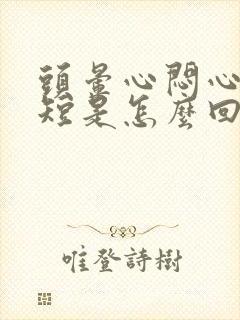 頭暈心悶心
短是怎麼回
唯登詩樹